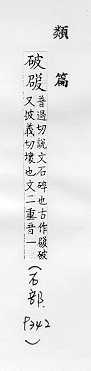 類篇
破碬
普過切說文石碎也古作碬破
又披義切壞也文二重音一
(石部, P342)